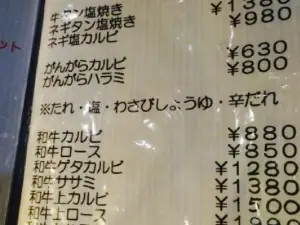 ット
牛タン塩焼き ¥1380
ネギタン塩焼き ¥980
ネギ塩カルビ ¥630
がんがらカルビ ¥800
がんがらハラミ
※たれ・塩・わさびしょうゆ・辛だれ
和牛カルビ ¥880
和牛ロース ¥850
和牛ゲタカルビ ¥1280
和牛ササミ ¥1380
和牛上カルビ ¥1500
和牛上ロース